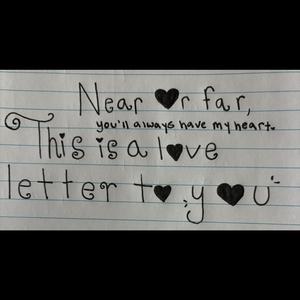 Near ♥r far,
you'll always have my heart.
This is a l♥ve
letter t♥ y♥u